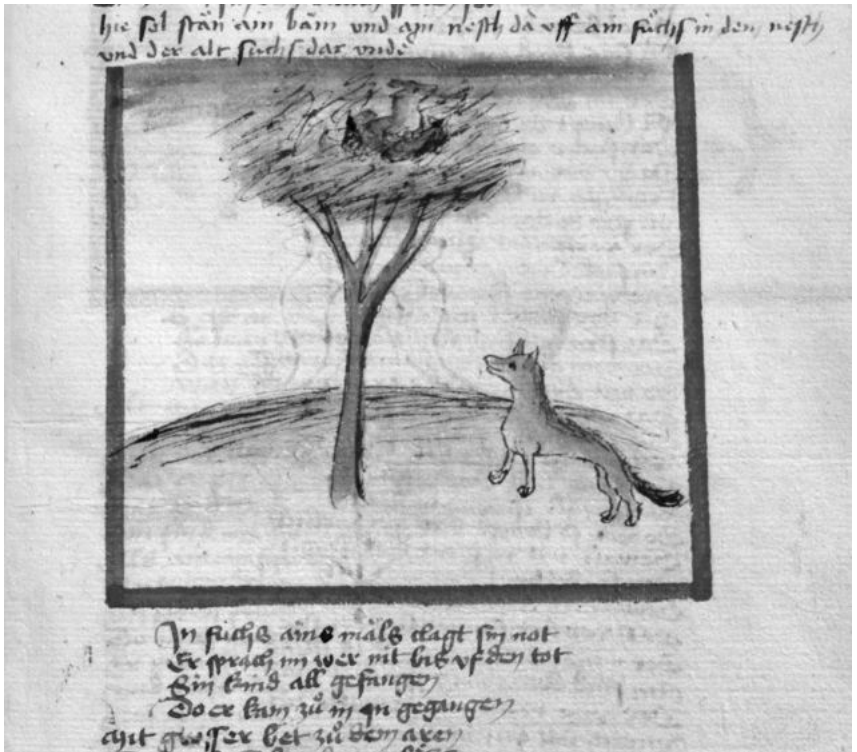 hie sol stăn ain băm und ain nesth dă vff ain fŭchs in dem nesth
und der alt fuchs dar unde
In fuchs ains măls clagt sin not
Er sprach im wer nit bis vf den tot
Sin kind all gefangen
Do er kam zŭ in gegangen
Mit grosser bet zŭ dem aren